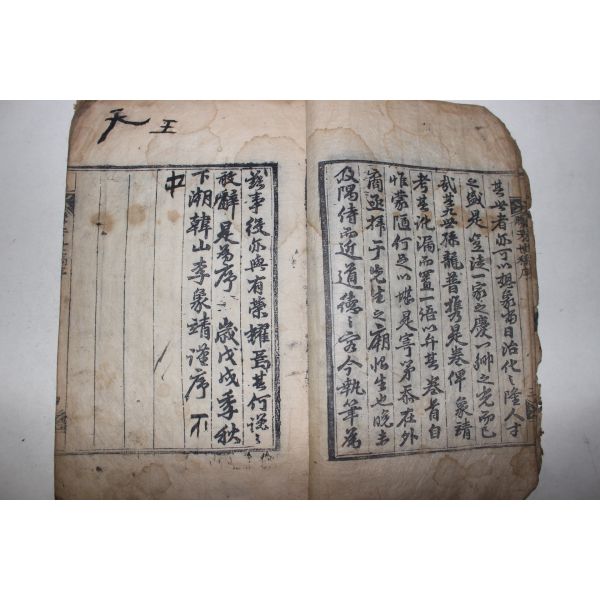 其世者亦可以想象當日治化之隆人才
之盛是豈徒一家之慶一鄉之光而已
哉其世孫龍普携是卷俾象靖
考其訛漏而置一語以弁其卷首自
惟蒙陋何足以堪是寄第忝在外
裔逖拜于先生之廟恨生也晚未
及隅侍而近道德之容今執筆爲
玆事役亦與有榮耀焉其何說之
敢辭是爲序 歲戊戌季秋
下澣韓山李象靖謹序 不
中
天
王